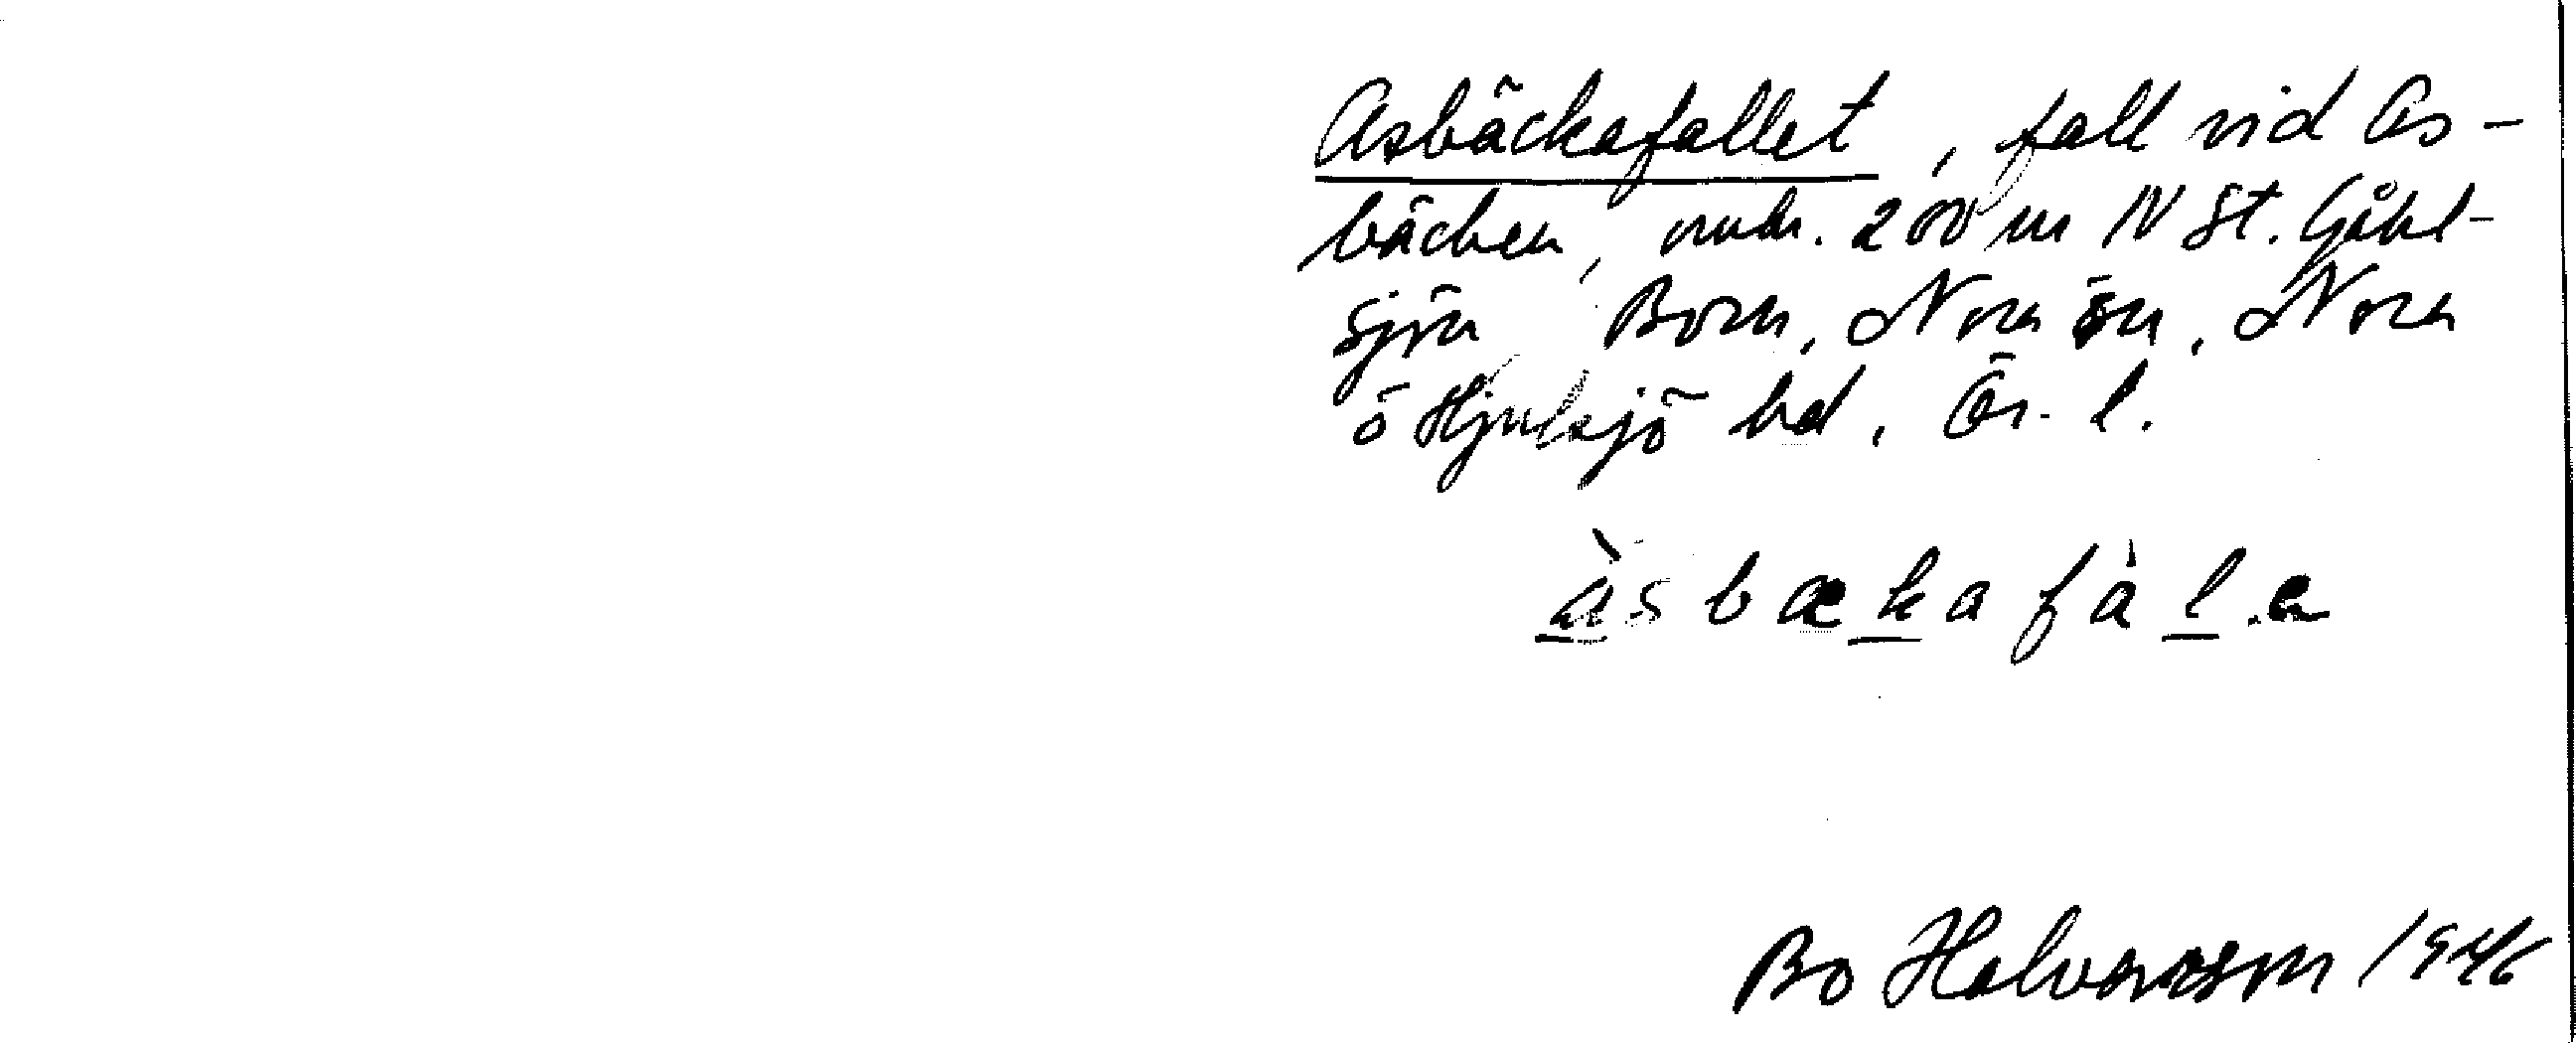 Asbäckafallet, fall vid As-
bäcken, omkr. 200 m N St. Gåhl-
sjön Born, Nora sn, Nora
o Hjulsjö bd, Ör. l.
às bækafàl.e
Bo Halvarsson 1946